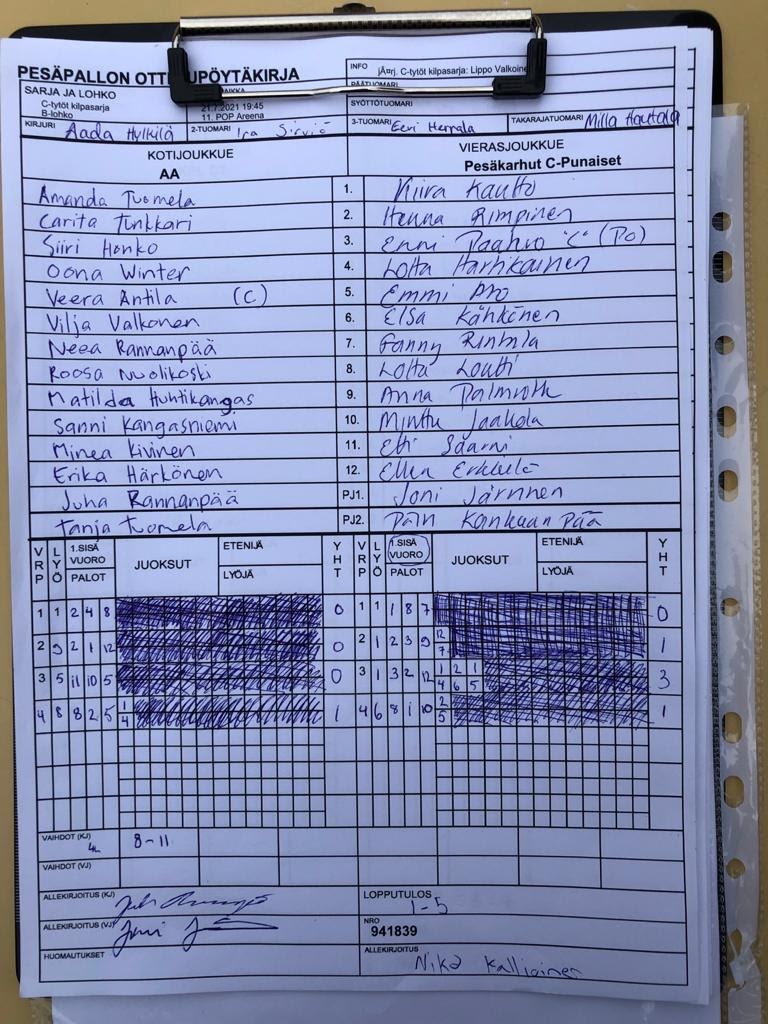 PESÄPALLON OTT UPÖYTÄKIRJA
INFO jÄ¤rj. C-tytöt kilpasarja: Lippo Valkoine
SARJA JA LOHKO
C-tytöt kilpasarja
B-lohko
21.7.2021 19:45
11. POP Areena
SYÖTTÖTUOMARI
KIRJURI Aada Hylkilä 2-TUOMARI Ira Sirviö 3-TUOMARI Eevi Herrala TAKARAJATUOMARI Milla Hautala
KOTIJOUKKUE VIERASJOUKKUE
AA Pesäkarhut C-Punaiset
Amanda Tuomela 1. Kiira Kautto
Carita Tunkkari 2. Henna Rimpinen
Siiri Honko 3. Enni "C" (Po)
Oona Winter 4. Lotta Harhikainen
Veera Antila (C) 5. Emmi Aro
Vilja Valkonen 6. Elsa Kähkönen
Neea Rannanpää 7. Fanny Rintala
Roosa Nuolikoski 8. Lotta Loutti
Matilda Huhtikangas 9. Anna Palmroth
Sanni Kangasniemi 10. Minttu Jaakola
Minea Kivinen 11. Elli Saarni
Erika Härkönen 12. Ellen Erkkilä
Juha Rannanpää PJ1. Joni Järvinen
Tanja Tuomela PJ2. Kankaanpää
VRP LYÖ 1.SISÄ VUORO PALOT JUOKSUT ETENIJÄ LYÖJÄ YHT VRP LYÖ 1.SISÄ VUORO PALOT JUOKSUT ETENIJÄ LYÖJÄ YHT
1 1 2 4 8 0 1 1 1 8 7 0
2 9 2 1 12 0 2 1 2 3 9 12 7 1
3 5 11 10 5 0 3 1 3 2 12 1 2 1 4 6 5 3
4 8 8 2 5 1 4 1 4 6 8 1 10 2 5 1
VAIHDOT (KJ) 4L 8-11
VAIHDOT (VJ)
ALLEKIRJOITUS (KJ) LOPPUTULOS 1-5
ALLEKIRJOITUS (VJ) NRO 941839
HUOMAUTUKSET ALLEKIRJOITUS Niko Kallioinen